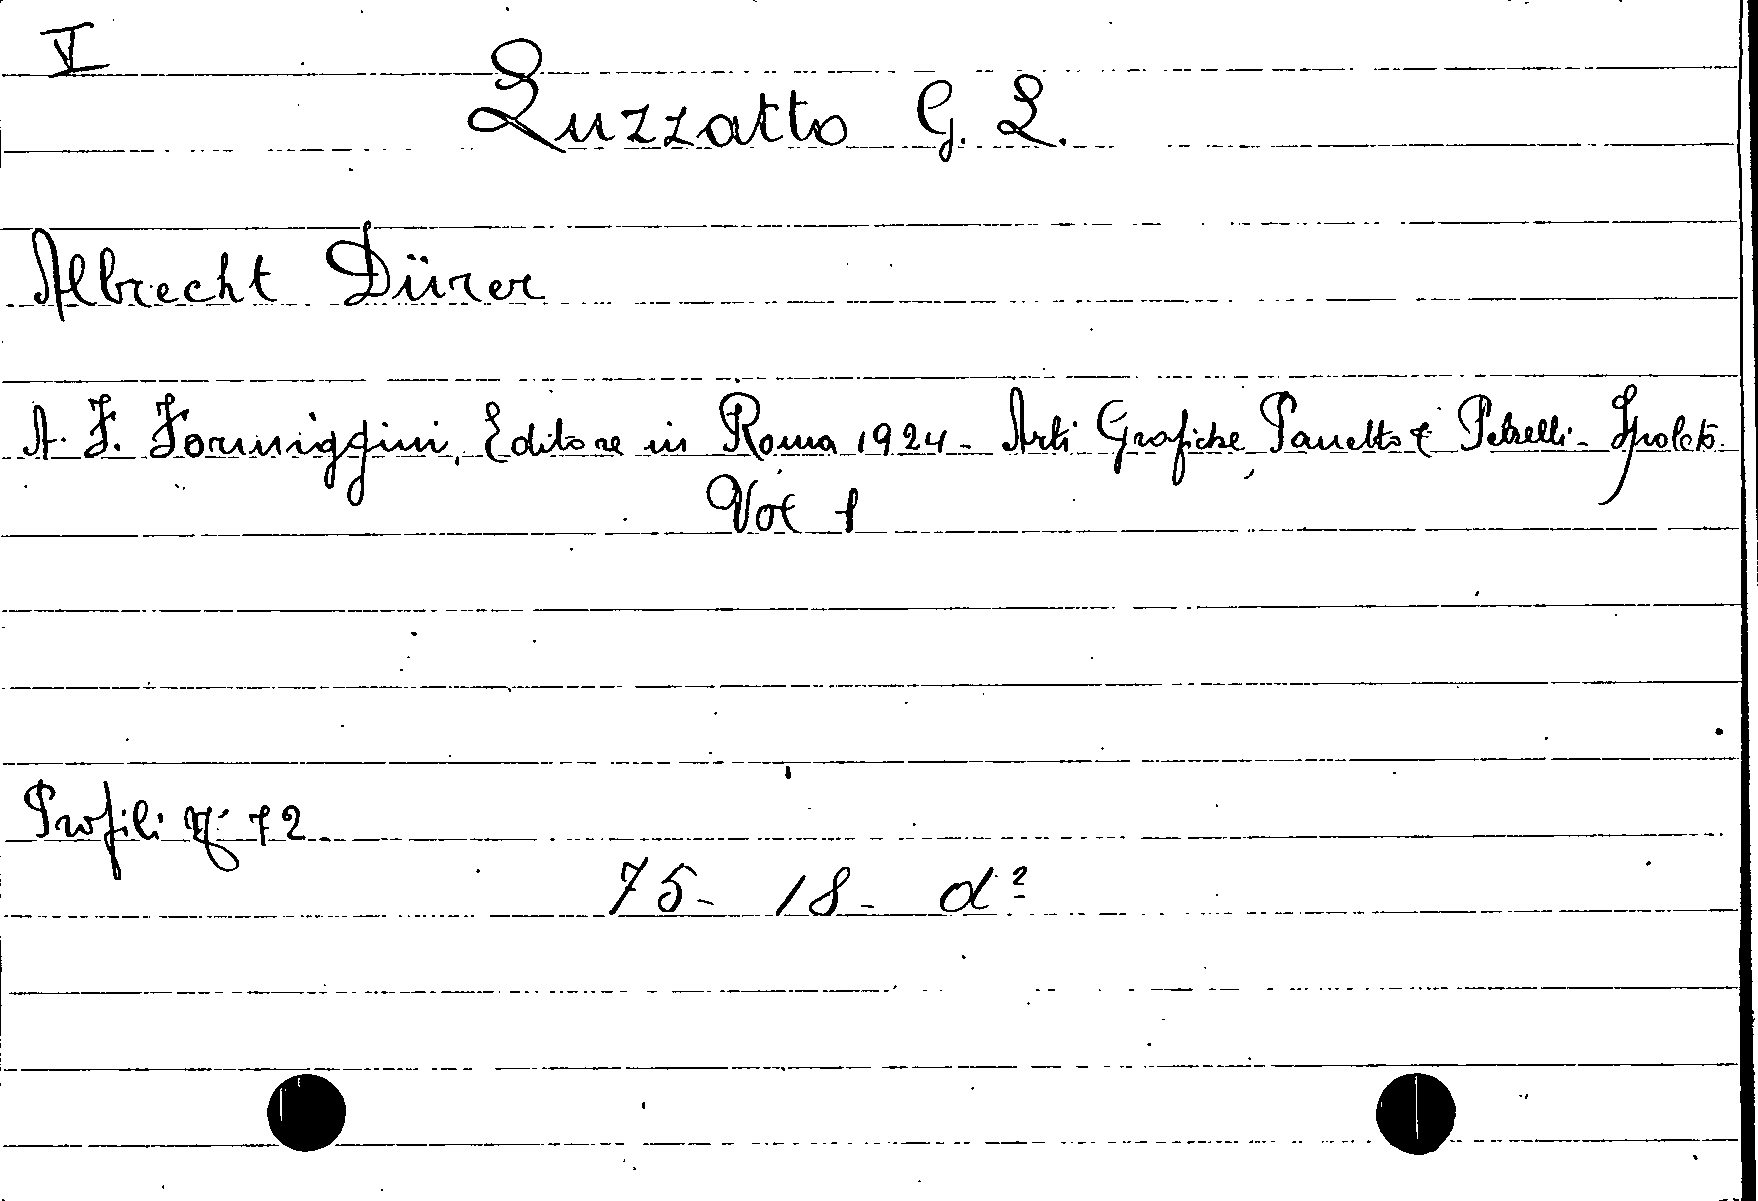 V
Luzzatto G. L.
Albrecht Dürer
A. F. Formiggini, Editore in Roma 1924 - Arti Grafiche Panetto & Petrelli - Spoleto
Vol 1
Profili N° 72
75 - 18 - d²